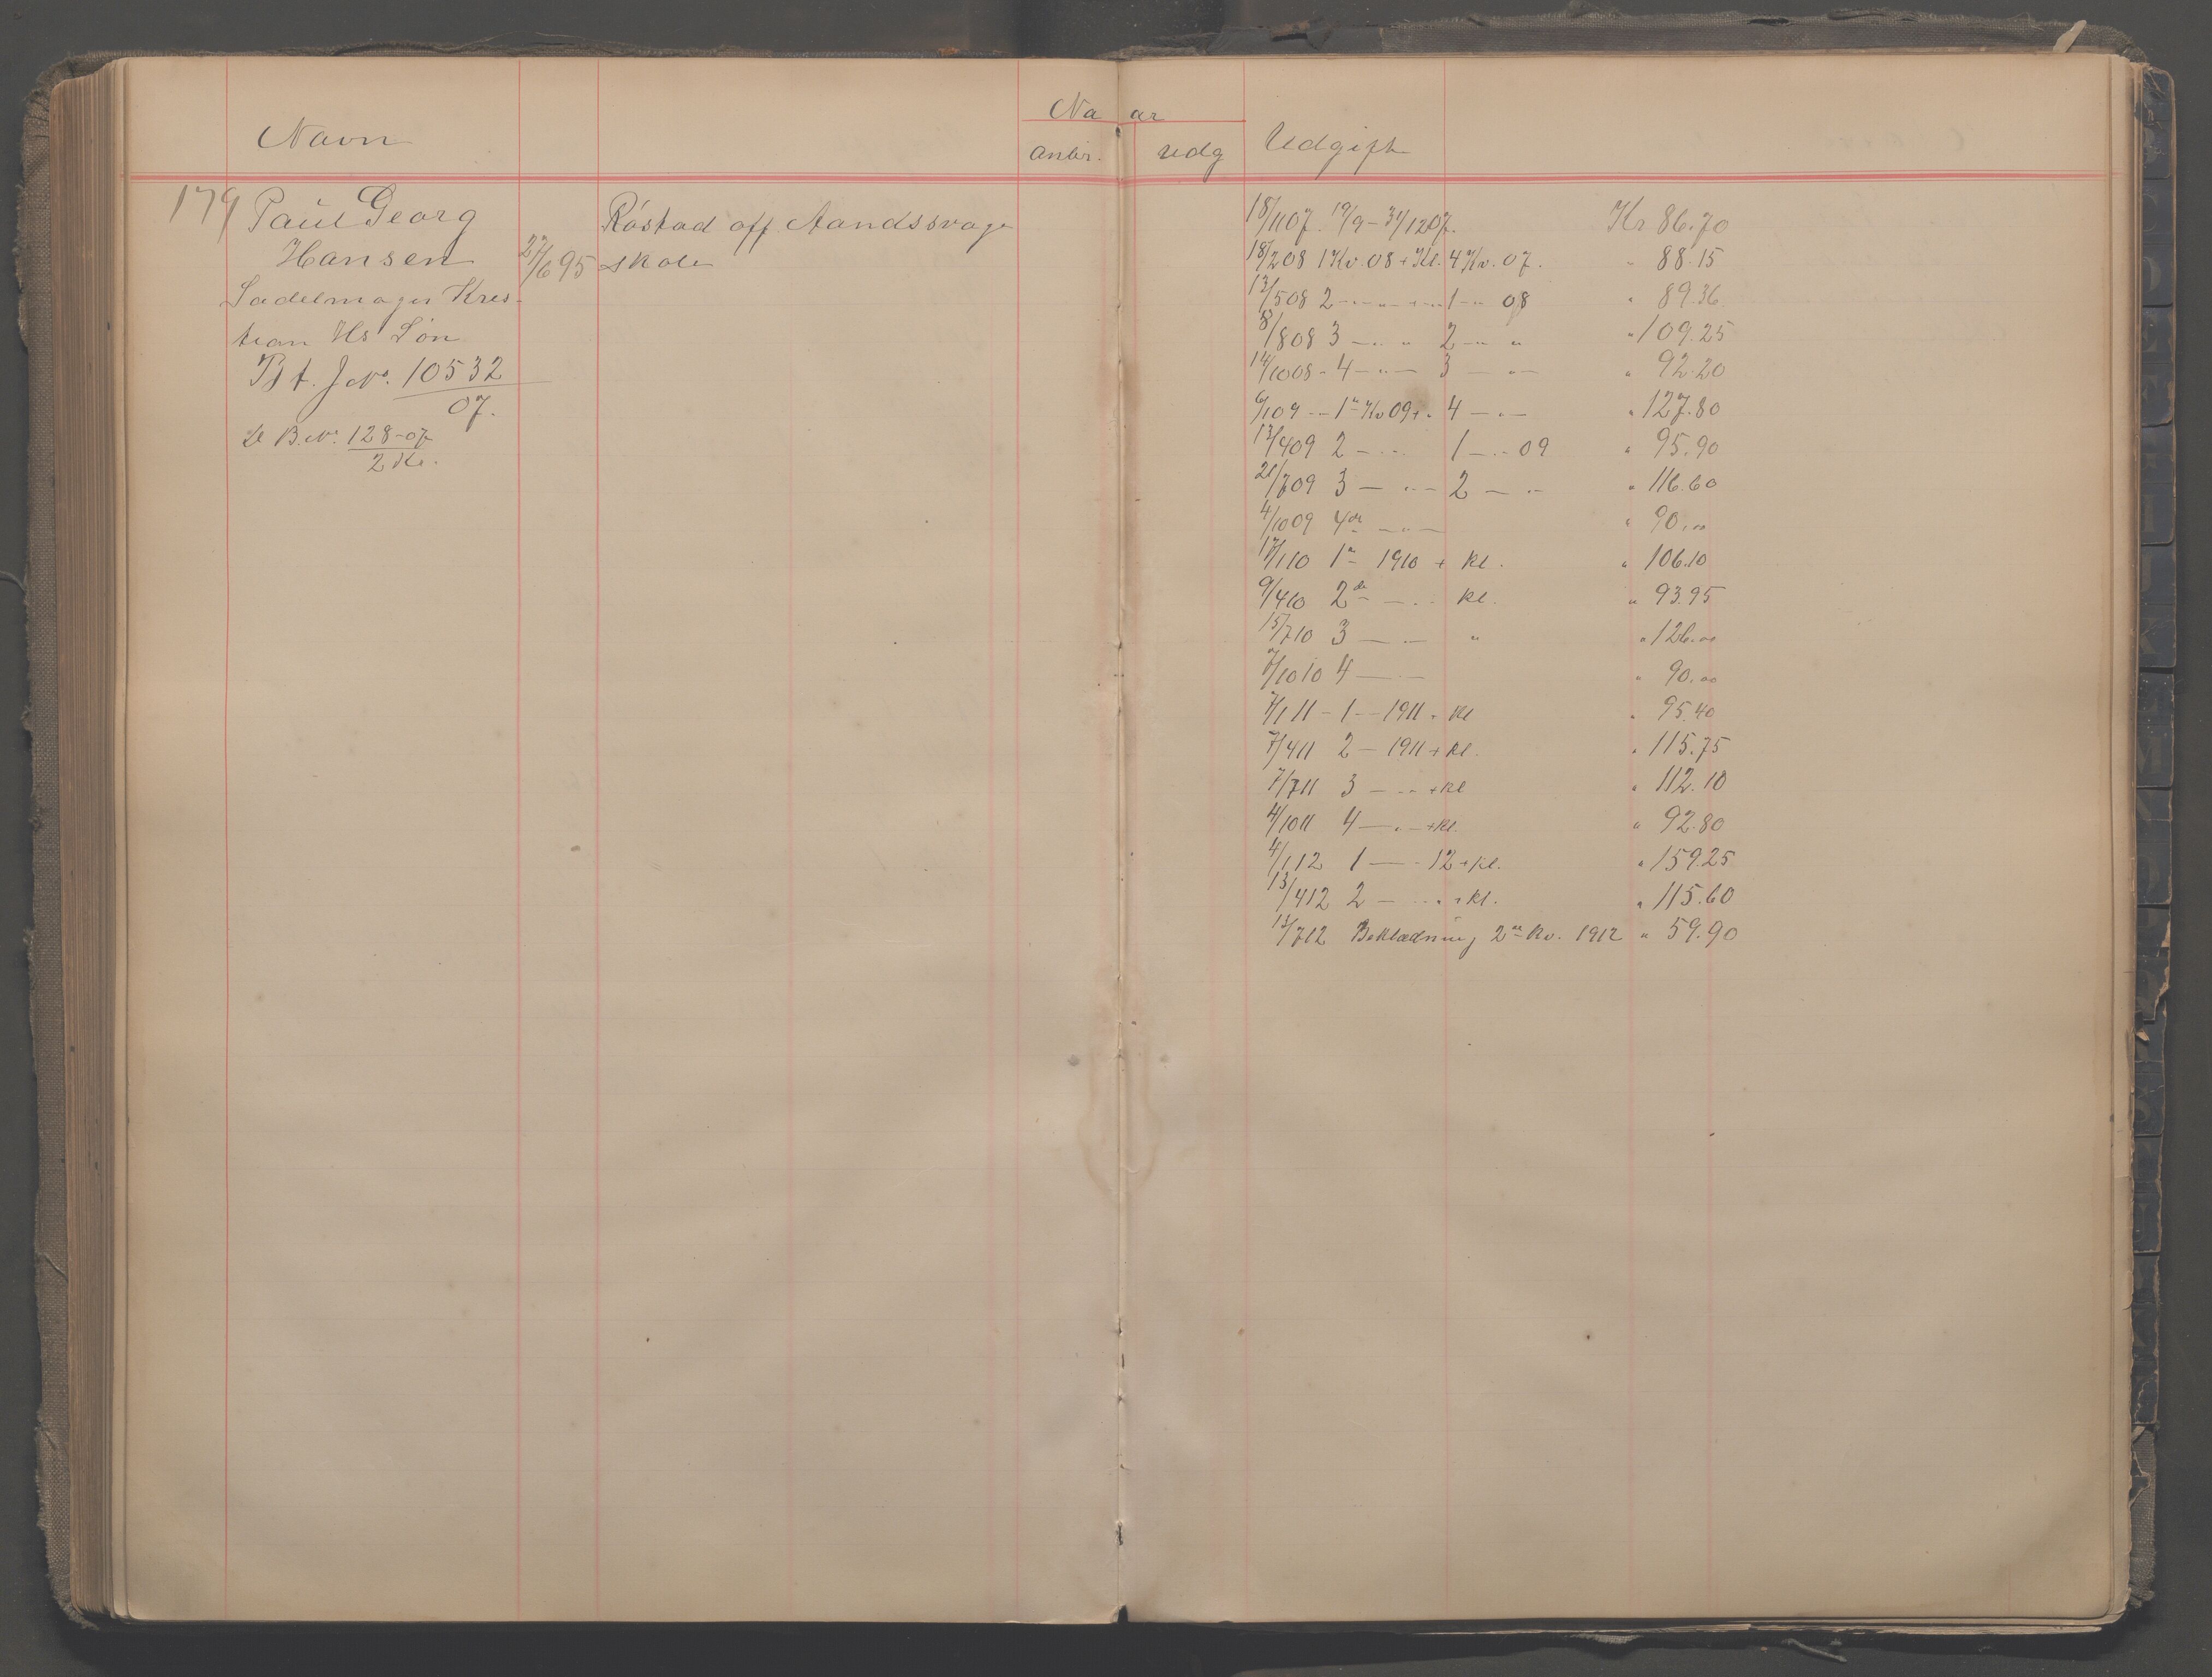 Navn
Na ar
Anbr. Udg Udgift
179 Paul Georg
Hansen 27/6 95
Sadelmager Kris-
tian Hs Søn
Bt. J.No. 10532
07.
B.No. 128-07
2 Kl.
Röstad off. Aandssvage
skole
18/1107. 19/9-31/1207. Kr 86.70
18/208 1 Kv. 08 + Kl. 4 Kv. 07. " 88.15
13/508 2 - " - " - + - " 1 - " 08 " 89.36
8/808 3 - " - " 2 - " " " 109.25
14/1008 - 4 - " - 3 - " - " 92.20
6/109 - 1ste Kv 09 + " 4 - " - " 127.80
13/409 2 - " - 1 - " - 09 " 95.90
21/709 3 - " - 2 - " - " 116.60
4/1009 4de - " - " 90."
17/110 1ste 1910 + Kl. " 106.10
9/410 2de - " - Kl. " 93.95
15/710 3 - " - " " 126.00
7/1010 4 - " - " 90.00
7/111 - 1 - - 1911 + Kl " 95.40
7/411 2 - 1911 + Kl. " 115.75
7/711 3 - " - + Kl " 112.10
4/1011 4 - " - + Kl. " 92.80
4/112 1 - - 12 + Kl. " 159.25
13/412 2 - " - " + Kl. " 115.60
13/712 Beklædning 2det Kv. 1912 " 59.90